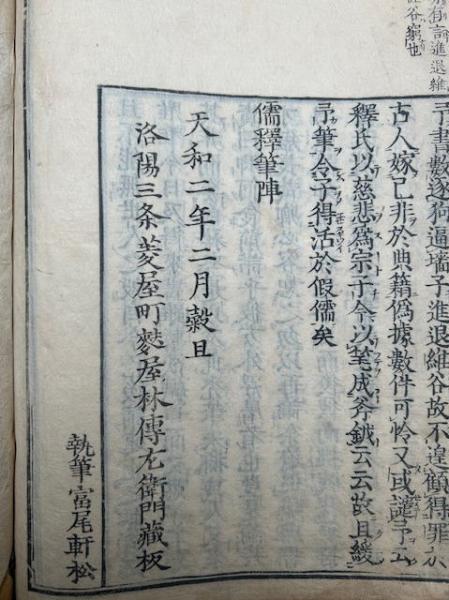 予書數逐狗逼墻子進退維谷故不遑顧得罪於
古人嫁己非於典籍僞據數件可怜又或譴予云
釋氏以慈悲爲宗子今以筆成斧鉞云云故且緩
予筆令子得活於假儒矣
儒釋筆陣
天和二年二月穀旦
洛陽三条菱屋町麩屋林傳左衛門藏板
執筆富尾軒松
有言進退維
谷窮也